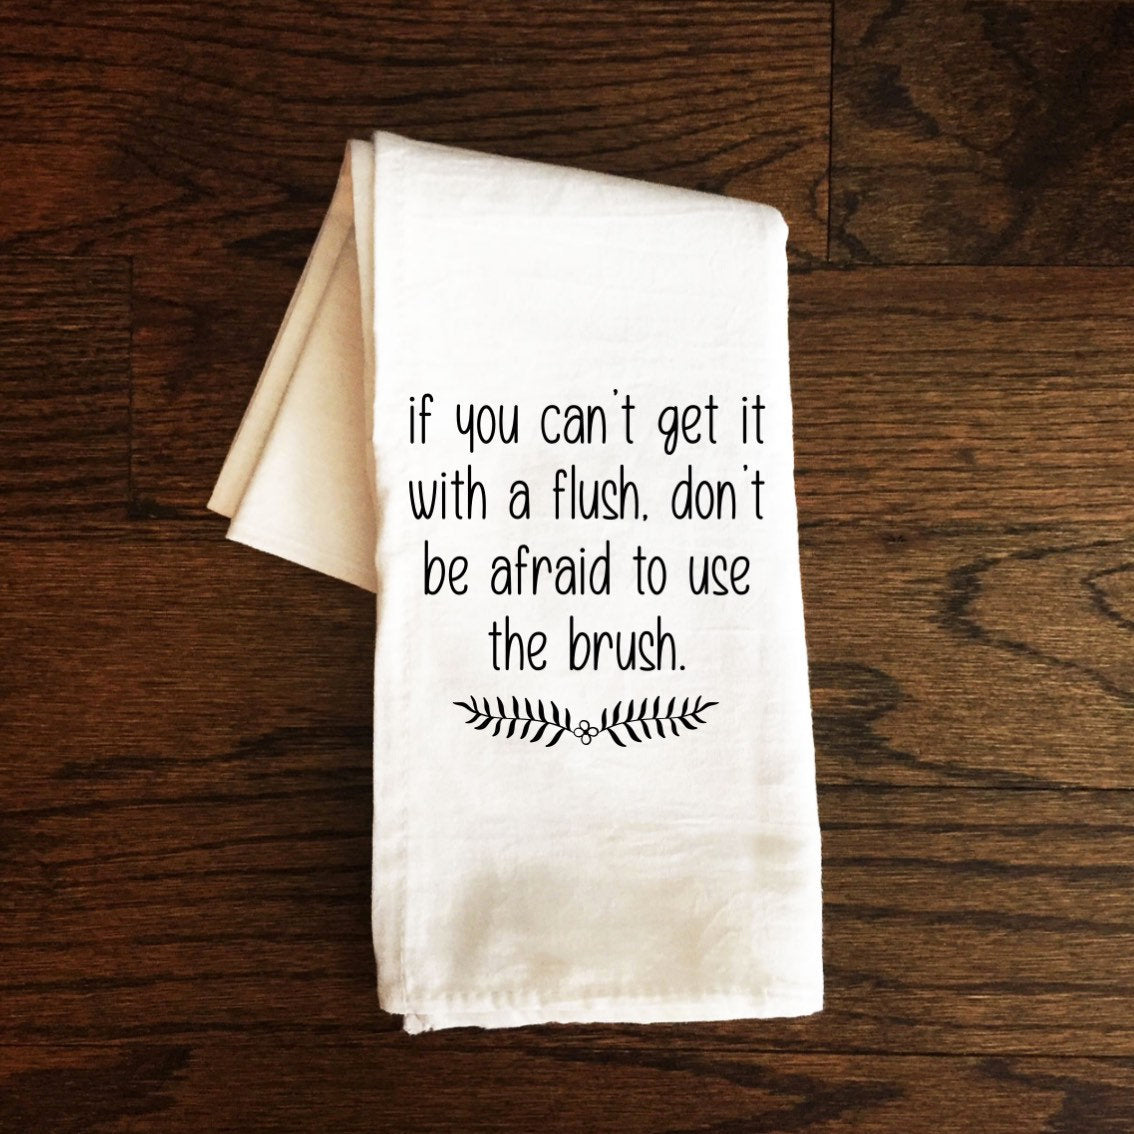 if you can't get it
with a flush, don't
be afraid to use
the brush.